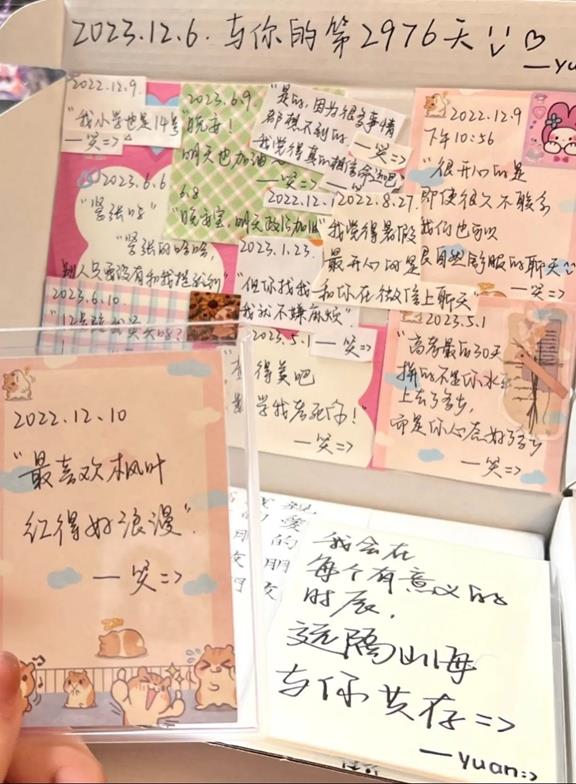 2023.12.6. 与你的第2976天
—yu
2022.12.9.
"我小学也是14号
—笑=>
2023.6.9.
晚安!
明天也加油
"是的,因为很多事情
都想不到的
我觉得真的相信命运吧
—笑=>
2022.12.9
下午10:56
"很开心的是
即使很久不联系
我们也可以
自然舒服的聊天
—笑=>
2023.6.6
"紧张哈
紧张的哈哈,
6.8
"晚安宝,明天政治加油
2022.12.1
2022.8.27.
"我觉得暑假
最开心的是
和你在微信上聊天"
—笑=>
2023.1.23.
"但你找我
我就不嫌麻烦"
2023.6.10
2023.5.1
得美吧
—笑=>
2023.5.1
"高考最后30天
拼的不是你水平
上去了多少,
而是你心态好了多少
—笑=>
2022.12.10
"最喜欢枫叶
红得好浪漫".
—笑=>
我会在
每个有意义的
时辰,
远隔山海
与你共存=>
—yuan=>